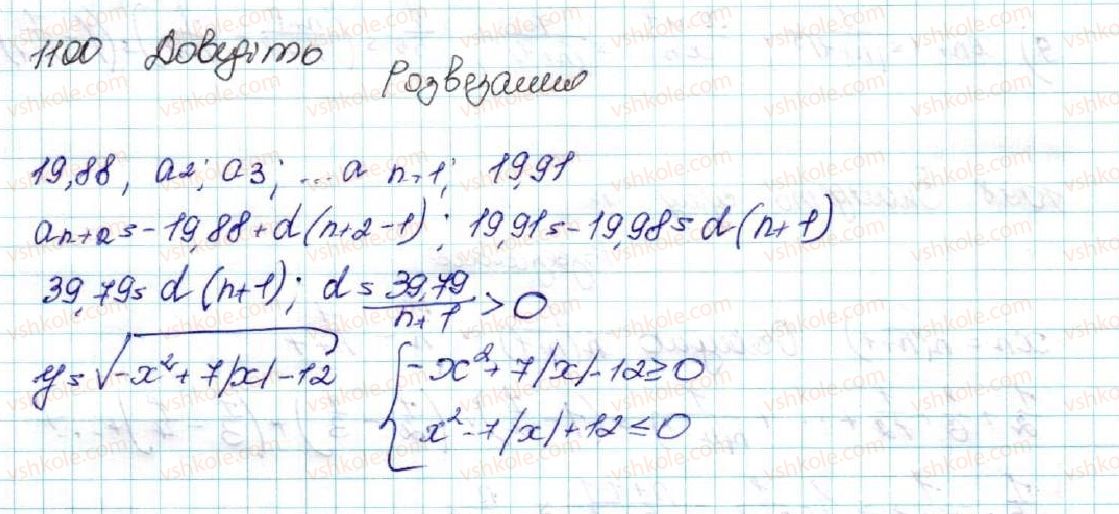 1100 Доведіть
Розвезання
19,88, a2; a3; ... a n+1; 19,91
an+2 = -19,88 + d(n+2-1); 19,91 = -19,98 = d(n+1)
39,79 = d(n+1); d = 39,79/n+1 > 0
y = √-x²+7|x|-12 { -x²+7|x|-12 ≥ 0
x²-7|x|+12 ≤ 0